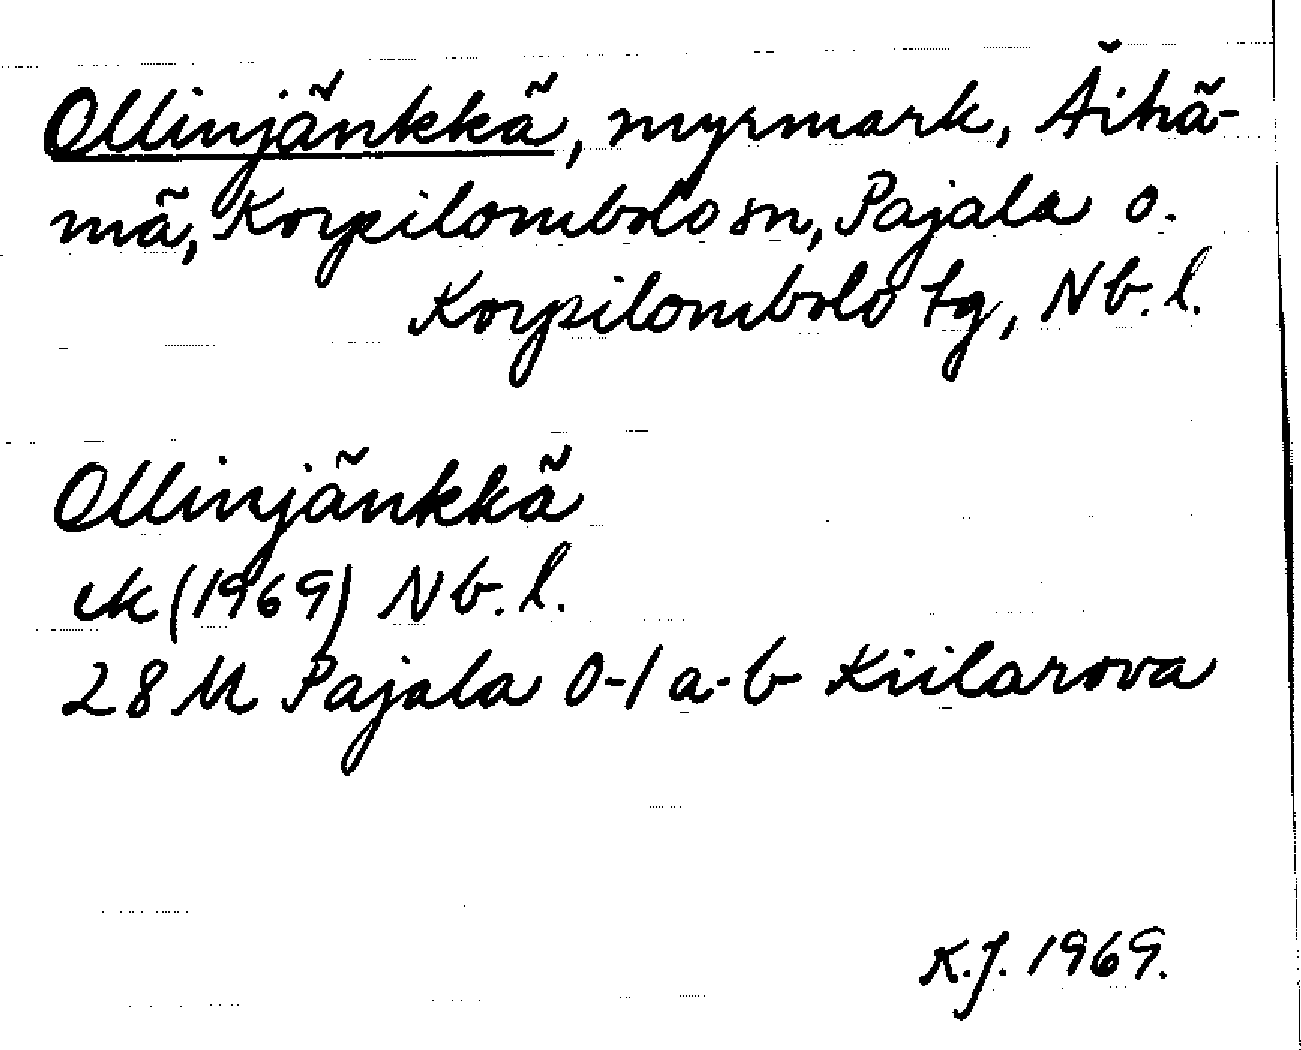 Ollinjänkkä, myrmark, Äihä-
mä, Korpilombolo sn, Pajala o.
Korpilombolo tg, Nb. l.
Ollinjänkkä
ek (1969) Nb. l.
28 M Pajala 0-1 a-b Kiilarova
K.J. 1969.